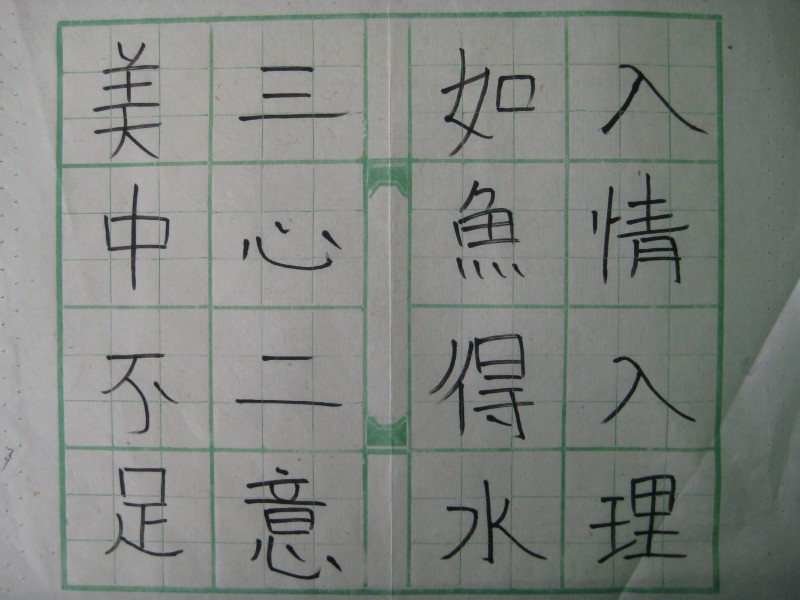 入情入理
如魚得水
三心二意
美中不足